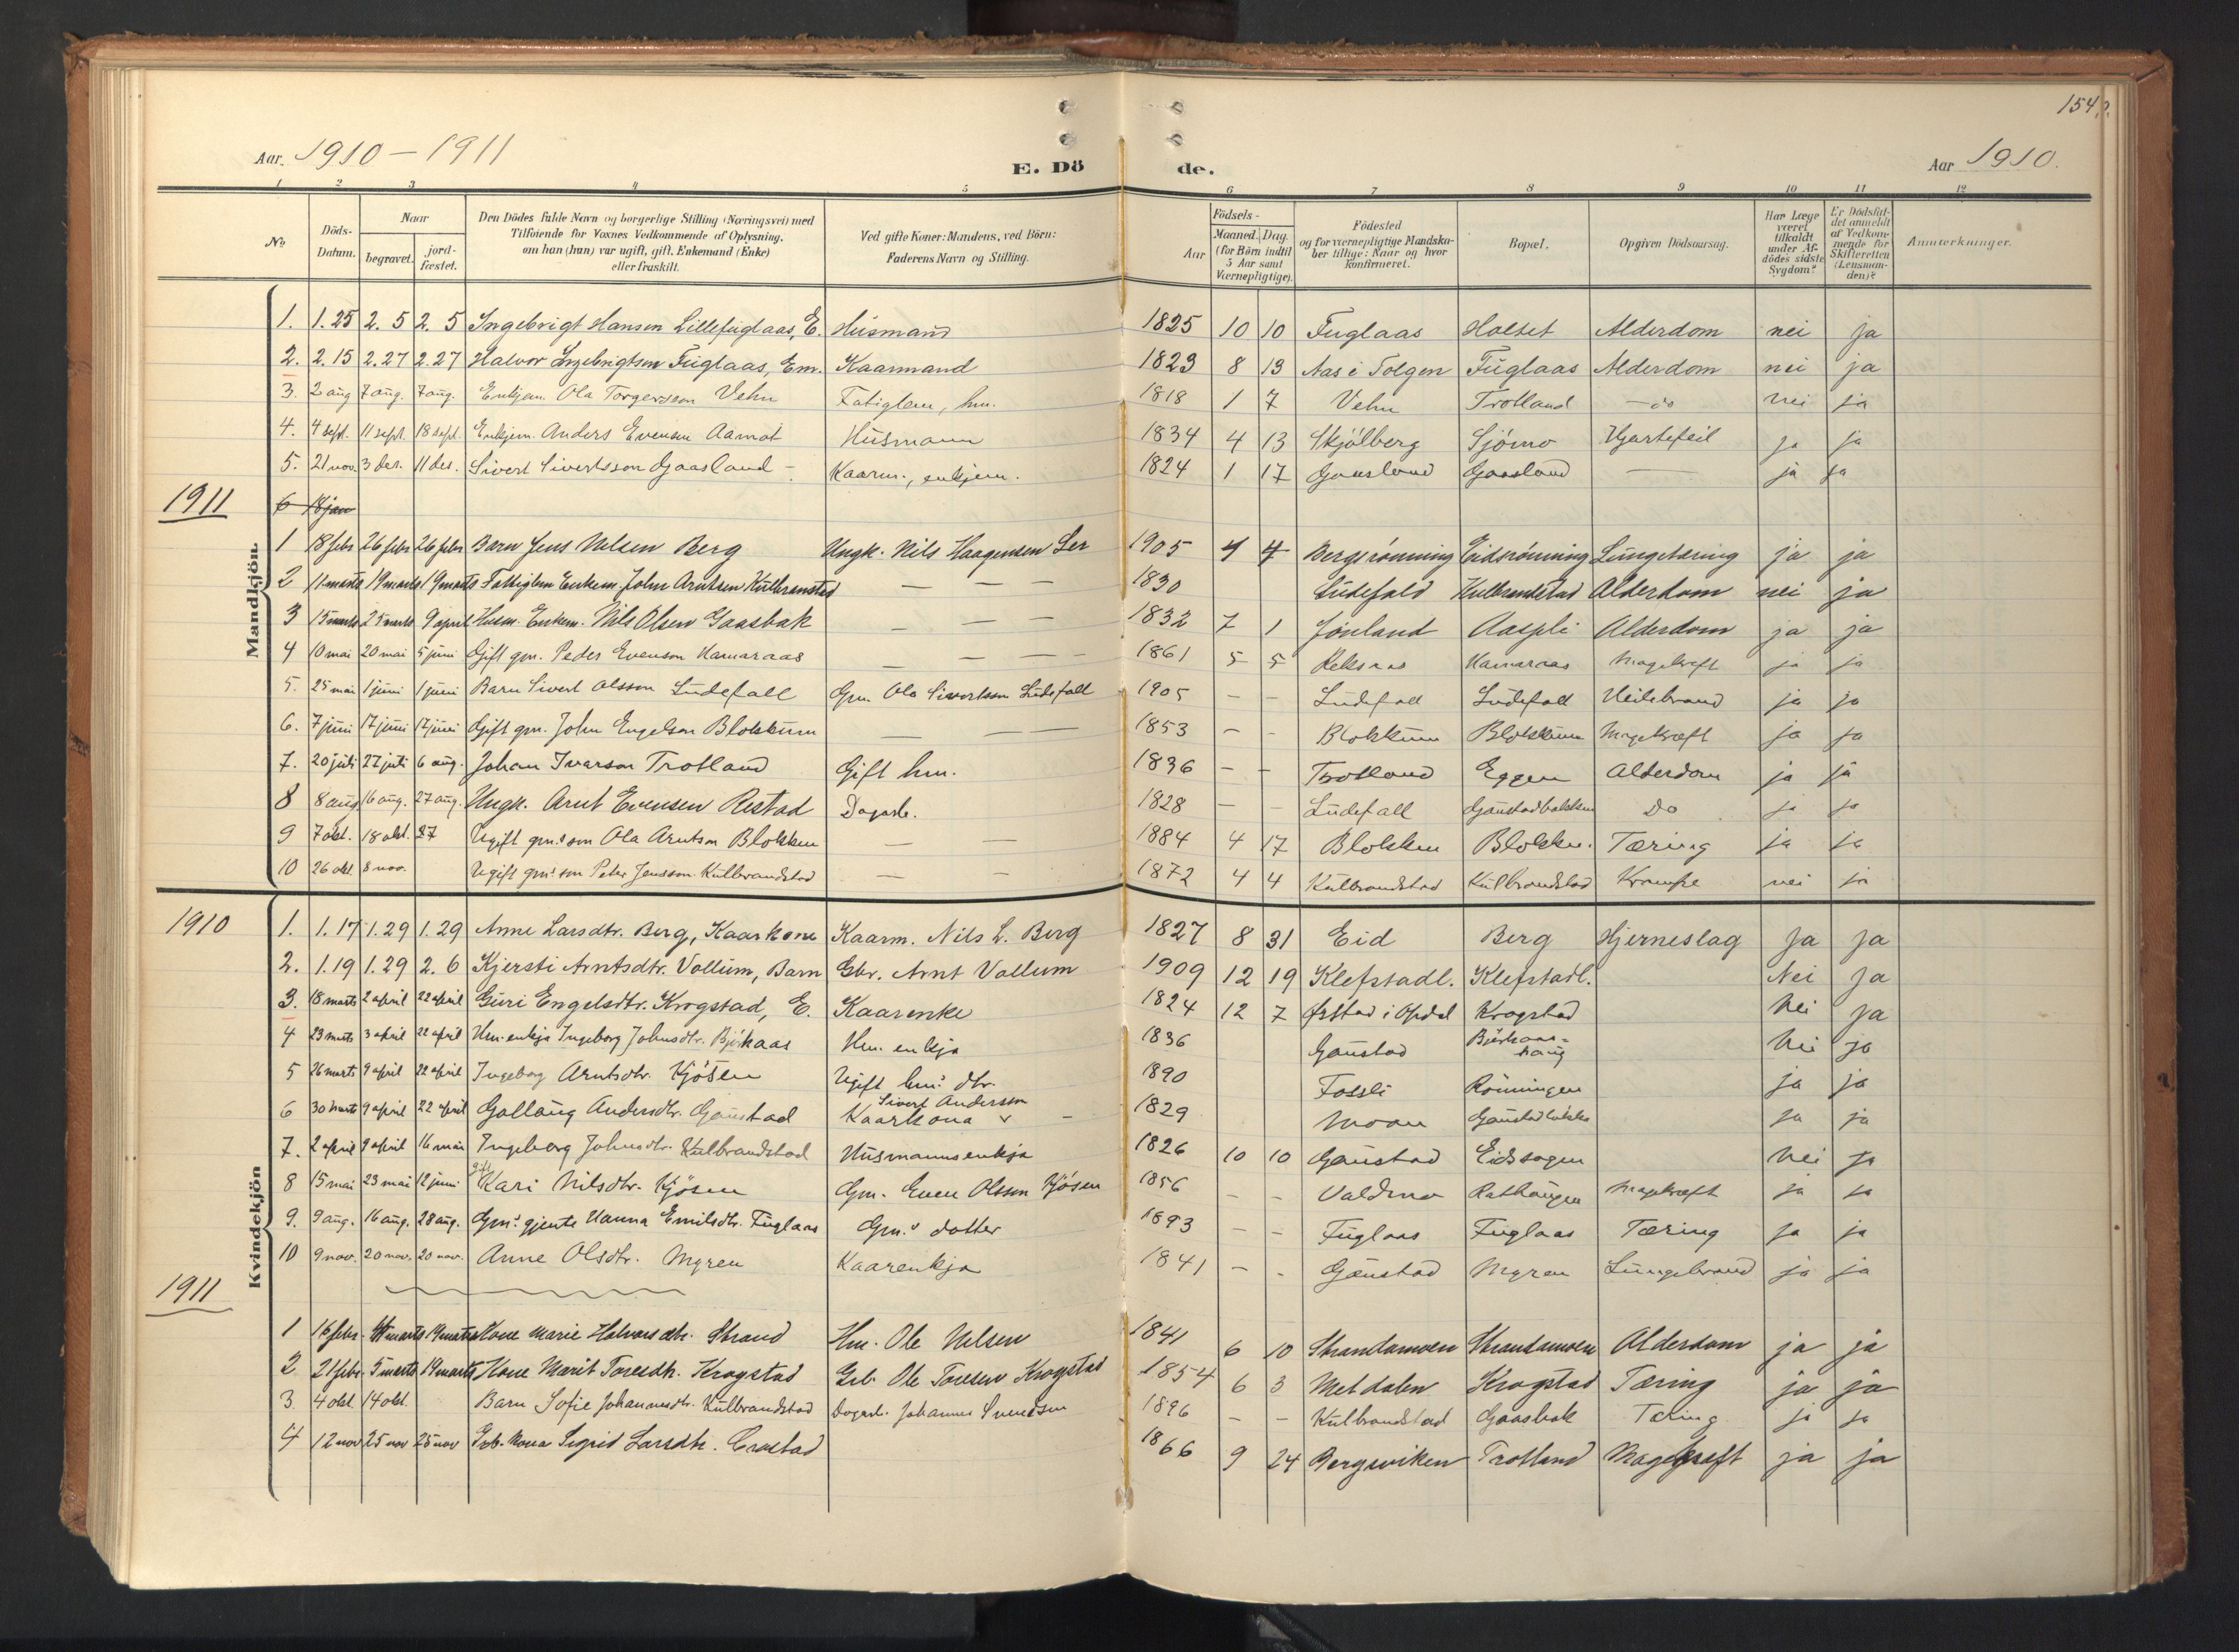 154
Aar. 1910 – 1911 E. Dö de. Aar 1910.
1 2 3 4 5 6 7 8 9 10 11 12
No
Döds-Datum.
Naar
begravet.
jord-fæstet.
Den Dödes fulde Navn og borgerlige Stilling (Næringsvei) med
Tilföiende for Voxnes Vedkommende af Oplysning,
om han (hun) var ugift, gift, Enkemand (Enke)
eller fraskilt.
Ved gifte Koner: Mandens, ved Börn:
Faderens Navn og Stilling.
Födsels-
Aar
Maaned. Dag
(for Börn indtil
5 Aar samt
Værnepligtige).
Födested
og for værnepligtige Mandska-
ber tillige: Naar og hvor
konfirmeret.
Bopæl.
Opgiven Dödsaarsag.
Har Læge
været
tilkaldt
under Af-
dödes sidste
Sygdom?
Er Dödsfal-
det anmeldt
af Vedkom-
mende for
Skifteretten
(Lensman-
den)?
Anmærkninger.
Mandkjön.
1. 1.25 2. 5 2. 5 Ingebrigt Hansen Lillefuglaas, E. Husmand 1825 10 10 Fuglaas Holset Alderdom nei ja
2. 2.15 2.27 2.27 Halvor Ingebrigtsen Fuglaas, Em. Kaarmand 1823 8 13 Aas i Tolgen Fuglaas Alderdom nei ja
3. 2 aug 7 aug. 7 aug. Enkjem. Ola Torgersson Vehn Fatiglem, hm. 1818 1 7 Vehn Trotland — do nei ja
4. 4 sept. 11 sept. 18 sept. Enkjem. Anders Evensen Aamot Husmann 1834 4 13 Skjölberg Sjömo Hjartefeil ja ja
5. 21 nov. 3 des. 11 des. Sivert Sivertsson Gaasland - Kaarm., enkjem. 1824 1 17 Gaasland Gaasland — ja ja
1911 6 18 jan
1 18 febr 26 febr 26 febr Barn Jens Nilsen Berg Ungk. Nils Haagensen Ler 1905 4 4 Bergsrönning Eidsrönning Lungetæring ja ja
2 11 marts 19 marts 19 marts Fattiglem Enkem. John Arntsen Kulbranstad — — — 1830 Ludefald Kulbrandstad Alderdom nei ja
3 15 marts 25 marts 9 april Husm. Enkem. Nils Olsen Gaasbak — — — 1832 7 1 Jönland Aaspli Alderdom ja ja
4 10 mai 20 mai 5 juni Gift gm. Peder Evenson Hamaraas — — — 1861 5 5 Reksaas Hamaraas Magekræft ja ja
5. 25 mai 1 juni 1 juni Barn Sivert Olsson Ludefall Gm. Ola Sivertsson Ludefall 1905 – – Ludefall Ludefall Heilebrand ja ja
6. 7 juni 17 juni 17 juni Gift gm. John Engelson Blokkum — — — 1853 – – Blokkum Blokkum Magekræft ja ja
7. 20 juli 27 juli 6 aug. Johan Ivarson Trotland Gift hm. 1836 – – Trotland Eggen Alderdom ja ja
8 8 aug 16 aug. 27 aug. Ungk. Arnt Evensen Restad Dagarb. 1828 – – Ludefall Gaustadbakken Do ja ja
9 7 okt. 18 okt. 27 Ugift gm.s son Ola Arntson Blokkum — — 1884 4 17 Blokkum Blokkum. Tæring ja ja
10 26 okt. 8 nov. Ugift gm.s son Peter Jensson Kulbrandstad — — 1872 4 4 Kulbrandstad Kulbrandstad Krampe nei ja
Kvindekjön
1910 1. 1.17 1.29 1.29 Anne Larsdtr. Berg, Kaarkone Kaarm. Nils L. Berg 1827 8 31 Eid Berg Hjerneslag Ja Ja
2. 1.19 1.29 2. 6 Kjersti Arntsdtr. Vollum, Barn Gbr. Arnt Vollum 1909 12 19 Klefstadl. Klefstadl. Nei Ja
3. 18 marts 2 april 22 april Guri Engelsdtr. Krogstad, E. Kaarenke 1824 12 7 Örstad i Opdal Krogstad Nei ja
4 23 marts 3 april 22 april Hm. enkja Ingeborg Johnsdtr. Björkaas Hm. enkja 1836 Gaustad Björkaas-
haug Nei ja
5 26 marts 9 april 22 april Ingeborg Arntsdtr. Kjösen Ugift hm.s dtr. 1890 Fossli Rönningen ja ja
6 30 marts 9 april 22 april Gollaug Andersdtr. Gaustad Sivert Andersson
Kaarkona – 1829 Moan Gaustadbakke Ja ja
7. 2 april 9 april 16 mai Ingeborg Johnsdtr. Kulbrandstad Husmannsenkja 1826 10 10 Gaustad Eidssagen Nei ja
8 15 mai 23 mai 12 juni gift Kari Nilsdtr. Kjösen Gm. Even Olsson Kjösen 1856 – – Valdmo Rathaugen Magekræft ja ja
9. 9 aug. 16 aug. 28 aug. Gm.s gjente Hanna Emilsdtr. Fuglaas Gm.s dotter 1893 – – Fuglaas Fuglaas Tæring Ja ja
10 9 nov. 20 nov. 20 nov. Anne Olsdtr. Myren Kaarenkja 1841 – - Gaustad Myren Lungebrand ja ja
1911
1 16 febr. 4 marts 19 marts Kone Marie Halvorsdtr. Strand Hm. Ole Nilsen 1841 6 10 Strandamoen Strandamoen Alderdom ja ja
2 21 febr. 5 marts 19 marts Kone Marit Toresdtr. Krogstad Grb. Ole Toresen Krogstad 1854 6 3 Metdalen Krogstad Tæring ja ja
3 4 okt. 14 okt. Barn Sofie Johannesdtr. Kulbrandstad Dagarb. Johannes Svendsen 1896 – – Kulbrandstad Gaasbak Tæring ja ja
4 12 nov 25 nov 25 nov Grb. kona Sigrid Larsdtr. 1866 9 24 Bergsviken Trotland Magekræft ja ja